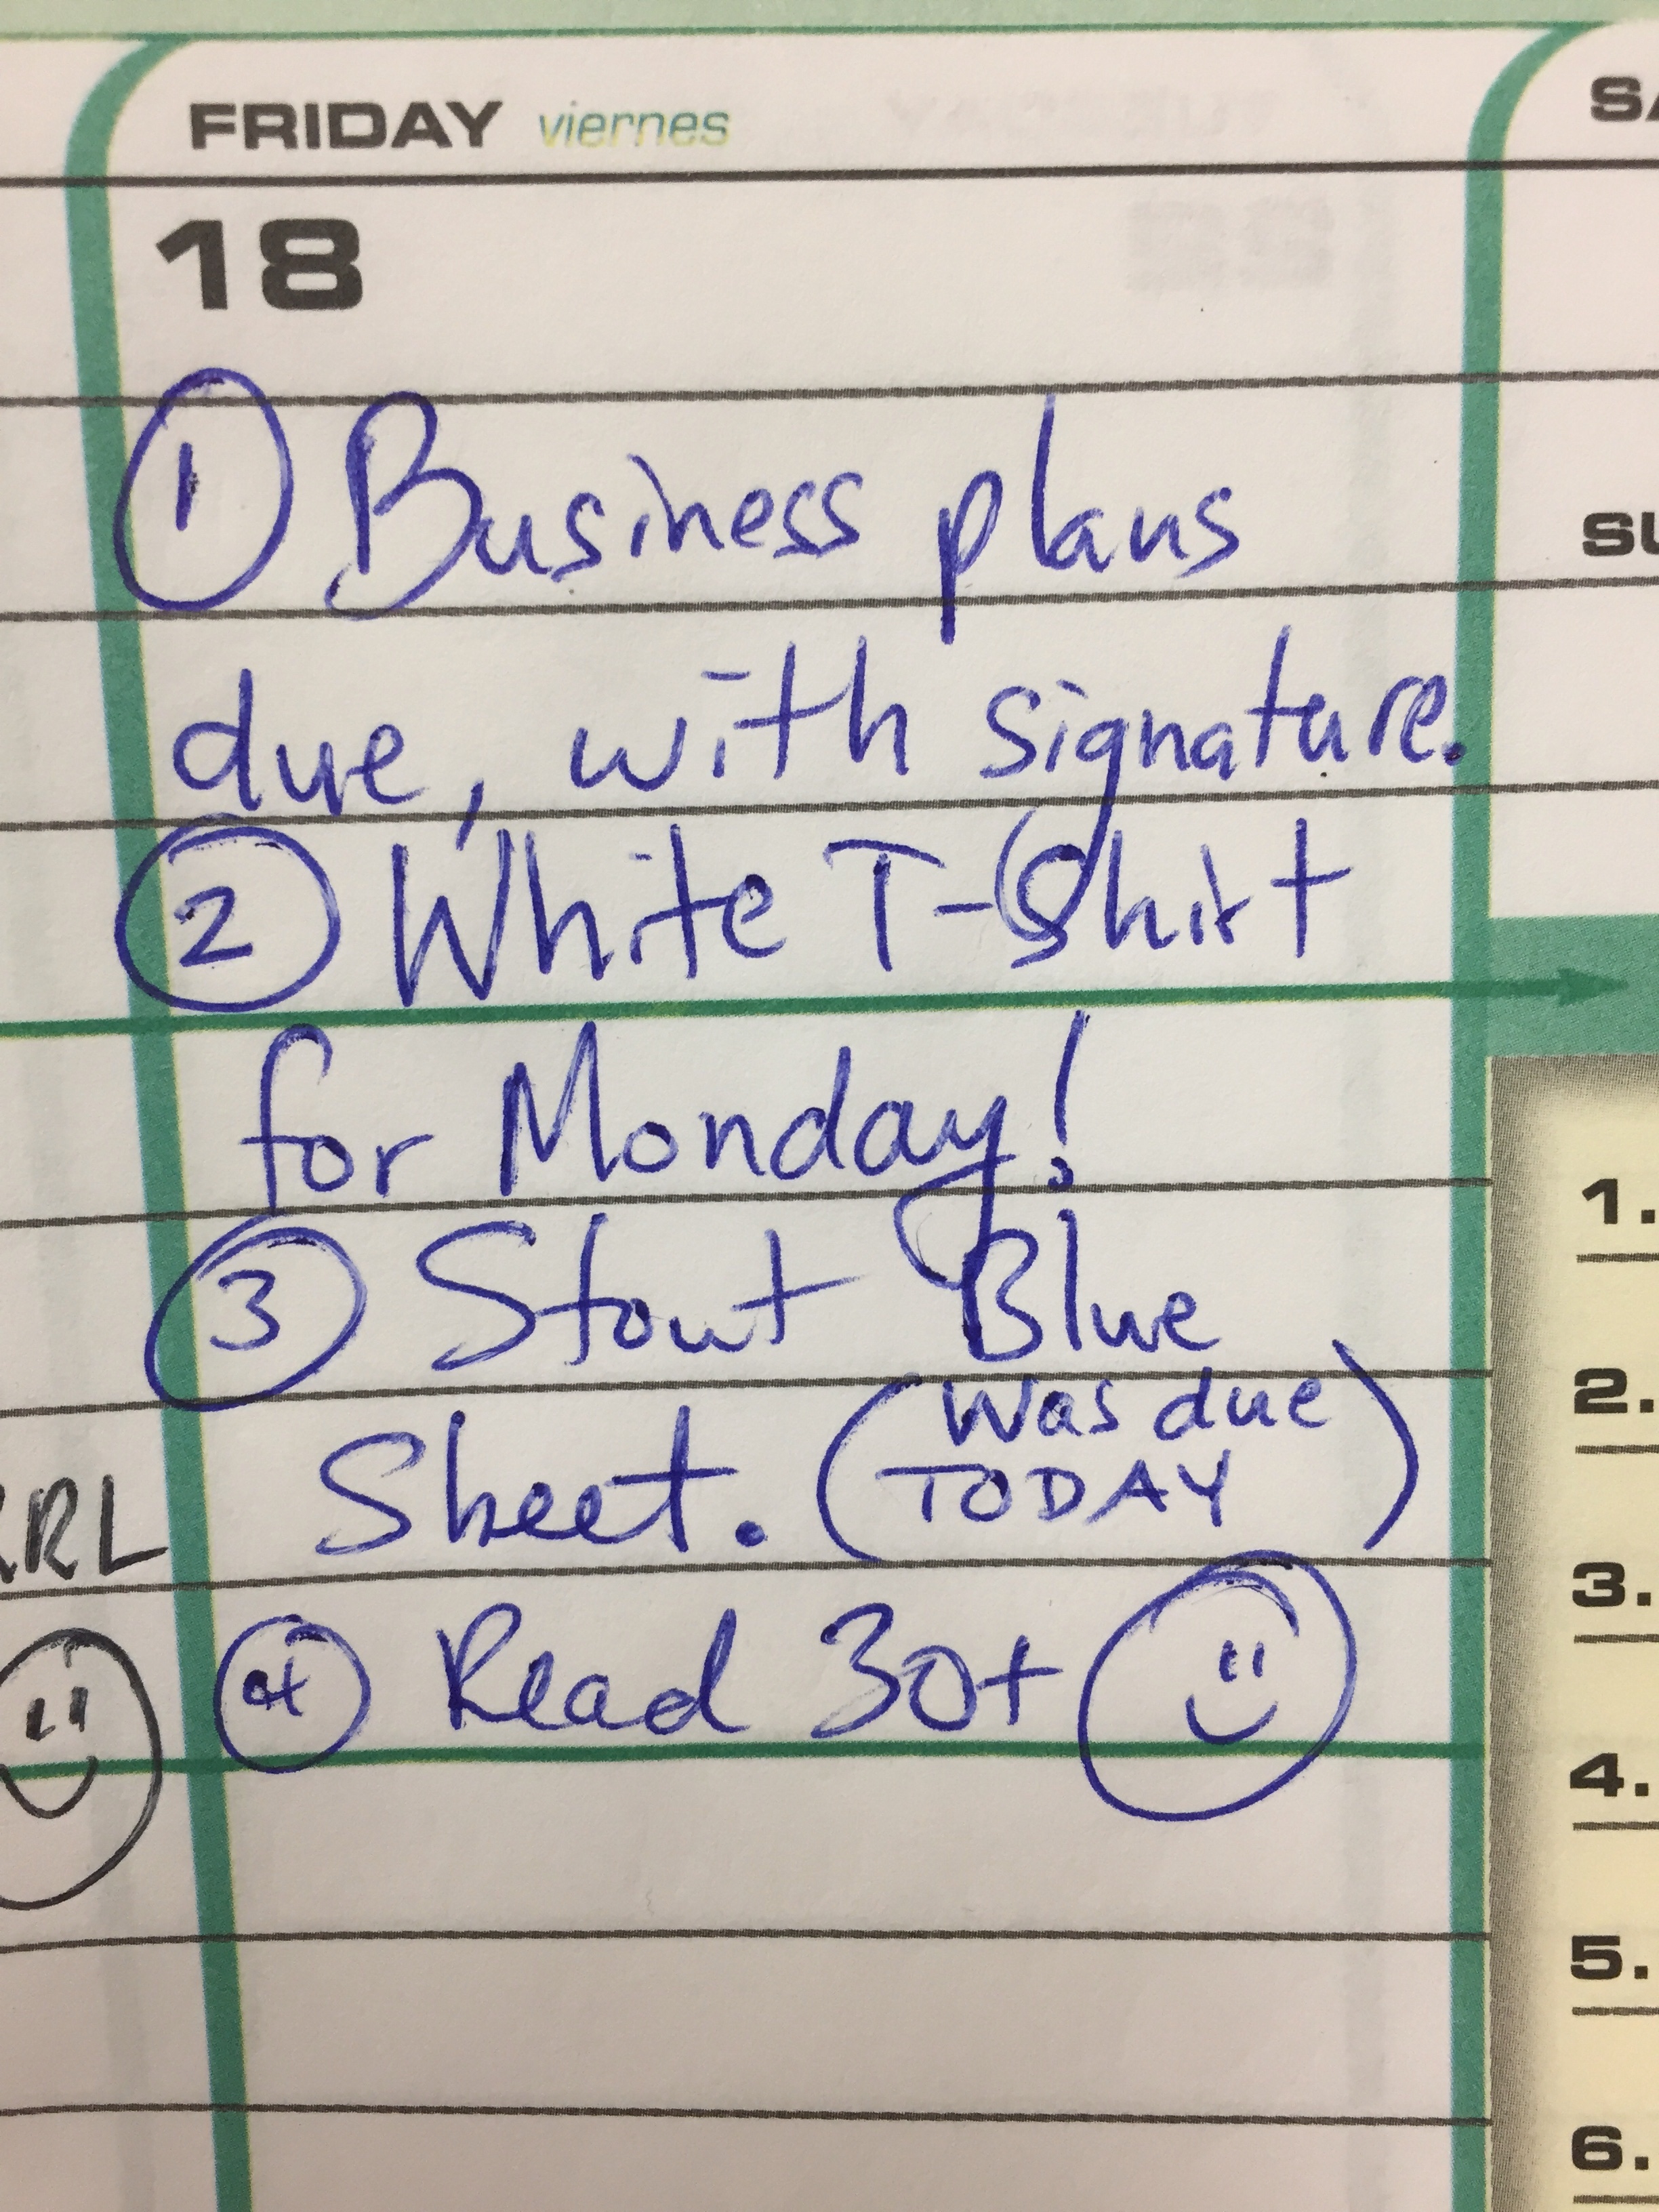 FRIDAY viernes
SA
18
① Business plans
SU
due, with signature.
② White T-Shirt
for Monday!
1.
③ Stout Blue
2.
Sheet. (Was due
TODAY)
RRL
3.
④ Read 30+
4.
5.
6.